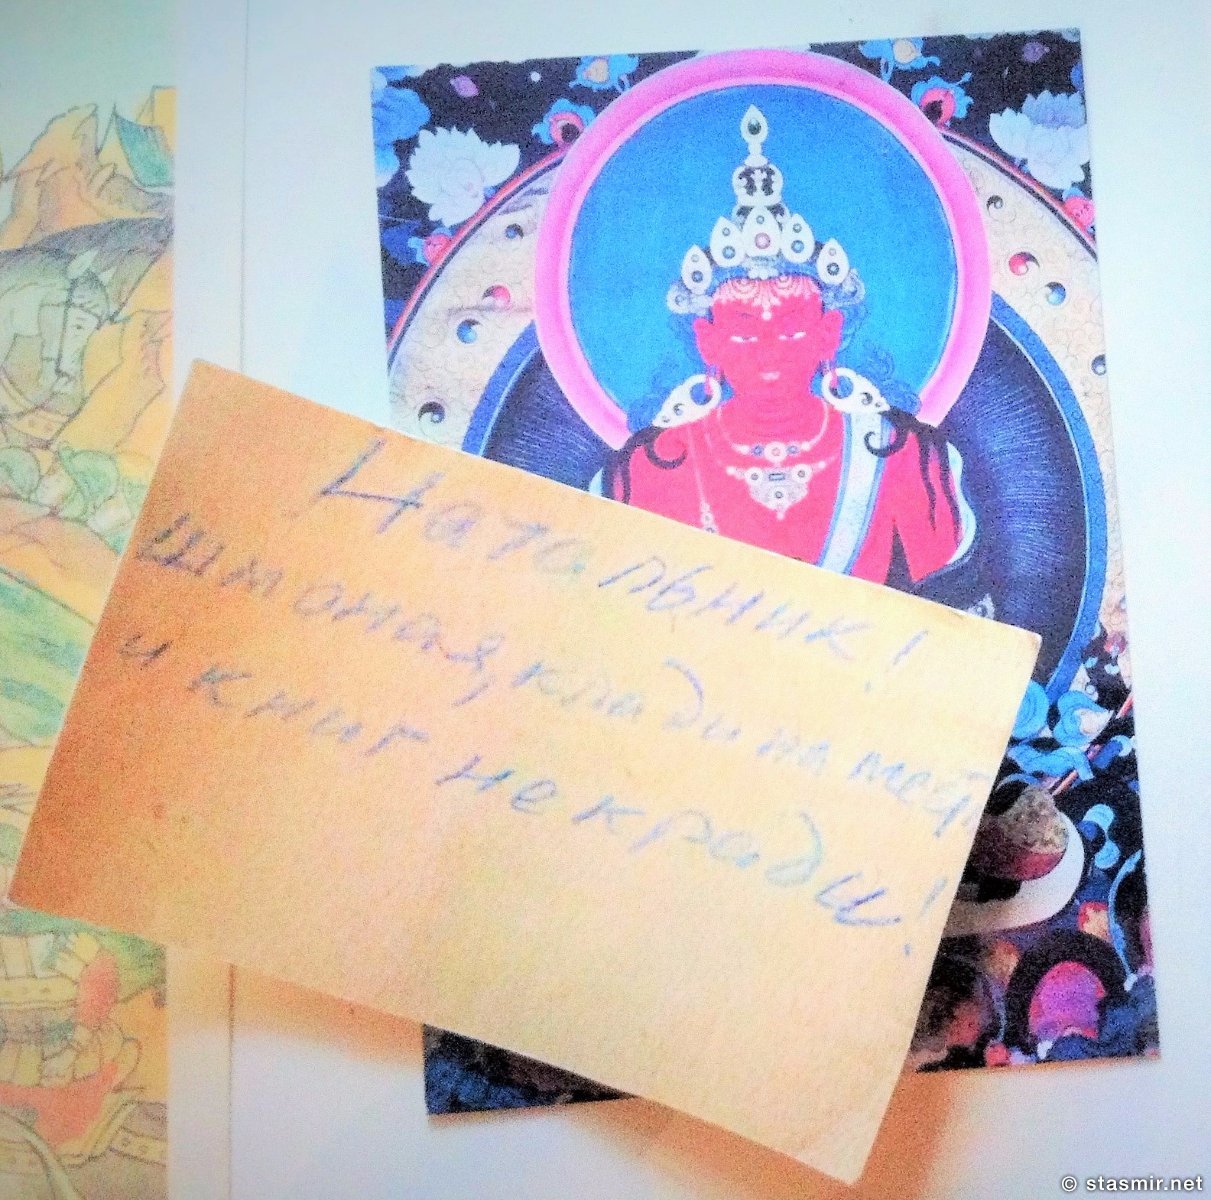 Натальник!
шмоная, клади на мест
и книг не кради!
© stasmir.net